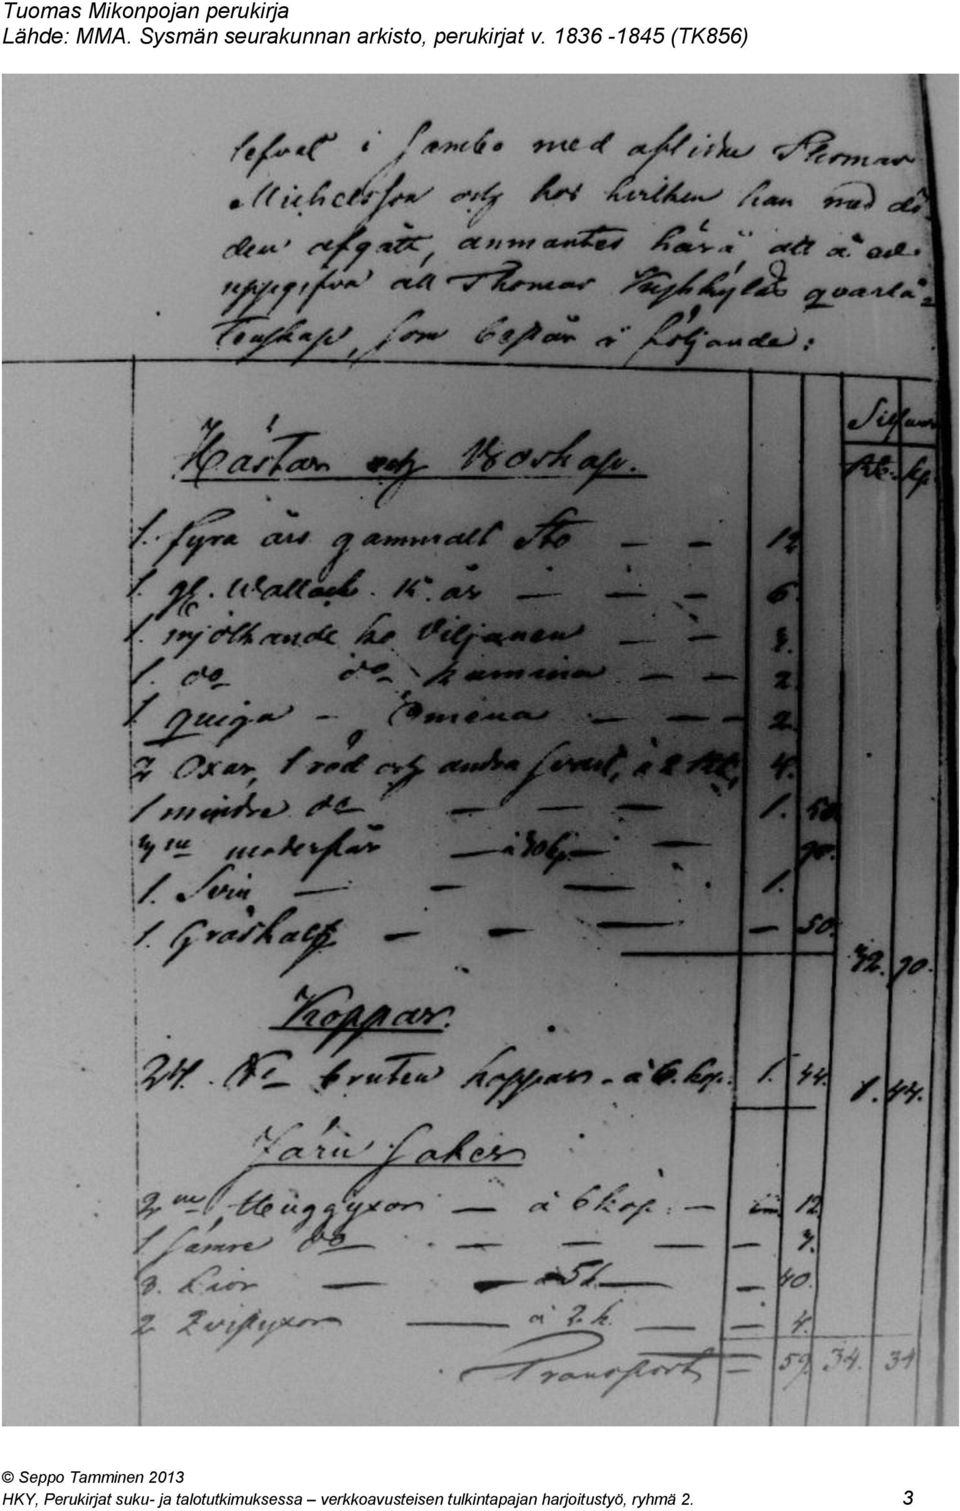 Tuomas Mikonpojan perukirja
Lähde: MMA. Sysmän seurakunnan arkisto, perukirjat v. 1836 -1845 (TK856)
lefvat i sambo med aflidne Thomas
Michelsson och hos hvilken han med dö-
den afgått, anmantes härå att å ed
uppgifva all Thomas qvarlå-
tenskap, som består i följande:
Silfver
Hästar och Boskap. Rb. kp.
1. fyra års gammalt Sto — — 12
1. gl. Wallack. 15 år — — — 6.
1. mjölkande ko Viljanen — — 3.
1. do do kummina — — 2.
1 quiga — Omena — — — 2.
2 Oxar, 1 röd och andra svart, à 2 Rb, 4.
1 mindre do — — — 1. 50.
3 ne moderfår — à 30 kp — — 90.
1. Svin — — — 1.
1. Gräskalf — — — — 50. 32. 90.
Koppar.
24. bruten koppar. à 6. kop. 1. 44. 1. 44.
Järn saker
2 ne Huggyxor — à 6 kop. — 12.
1 sämre do — — — — 3.
8. Lior — à 5 k. — — 40.
2 à 2 k. — — 4.
Transport — 59. 34. 34
© Seppo Tamminen 2013
HKY, Perukirjat suku- ja talotutkimuksessa – verkkoavusteisen tulkintapajan harjoitustyö, ryhmä 2. 3